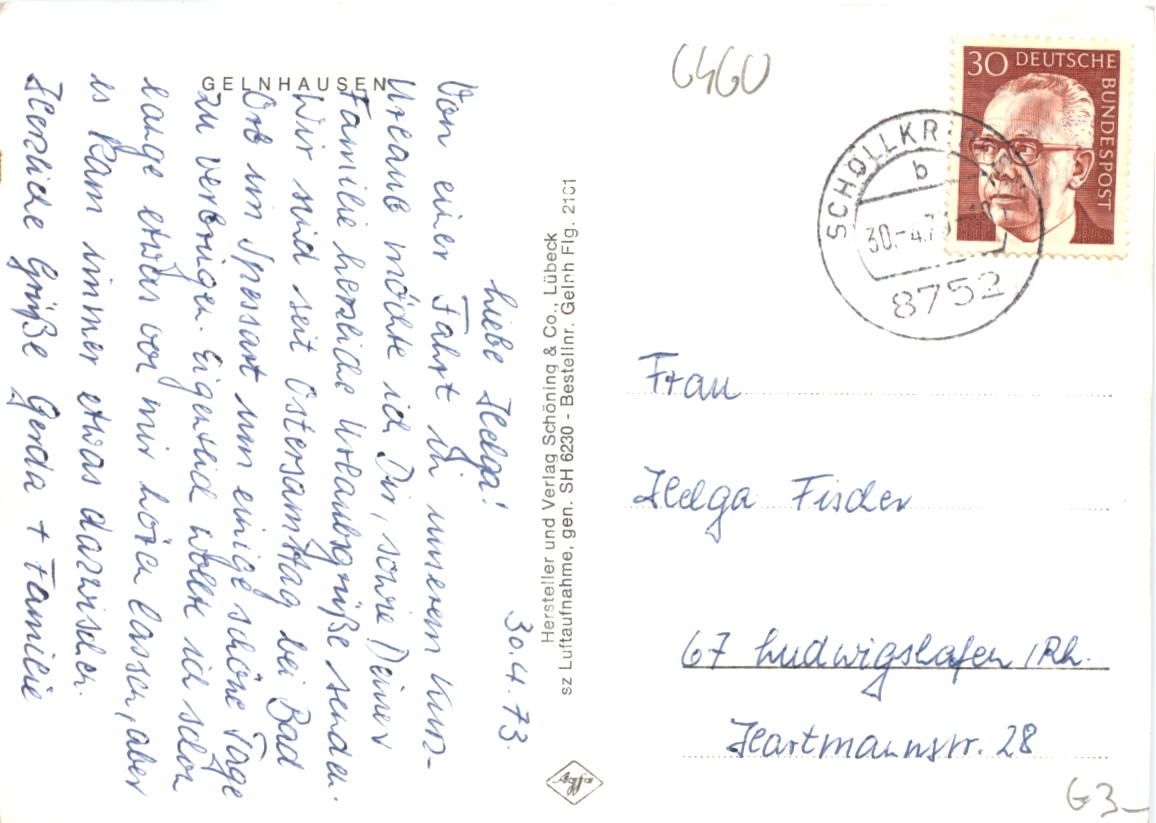 GELNHAUSEN
Liebe Helga! 30.4.73.
Von einer Fahrt in unserem Kurz-
Urlaub möchte ich Dir, sowie Deiner
Familie herzliche Urlaubsgrüße senden.
Wir sind seit Ostersamstag bei Bad
Orb im Spessart um einige schöne Tage
zu verbringen. Eigentlich wollte ich schon
lange etwas von mir hören lassen, aber
es kam immer etwas dazwischen.
Herzliche Grüße Gerda + Familie
Hersteller und Verlag Schöning & Co., Lübeck
sz Luftaufnahme, gen. SH 6230 - Bestellnr. Gelnh Flg. 2101
Agfa
6460
30 DEUTSCHE
BUNDESPOST
b
30.-4.73
8752
Frau
Helga Fischer
67 Ludwigshafen /Rh.
Hartmannstr. 28
G3-